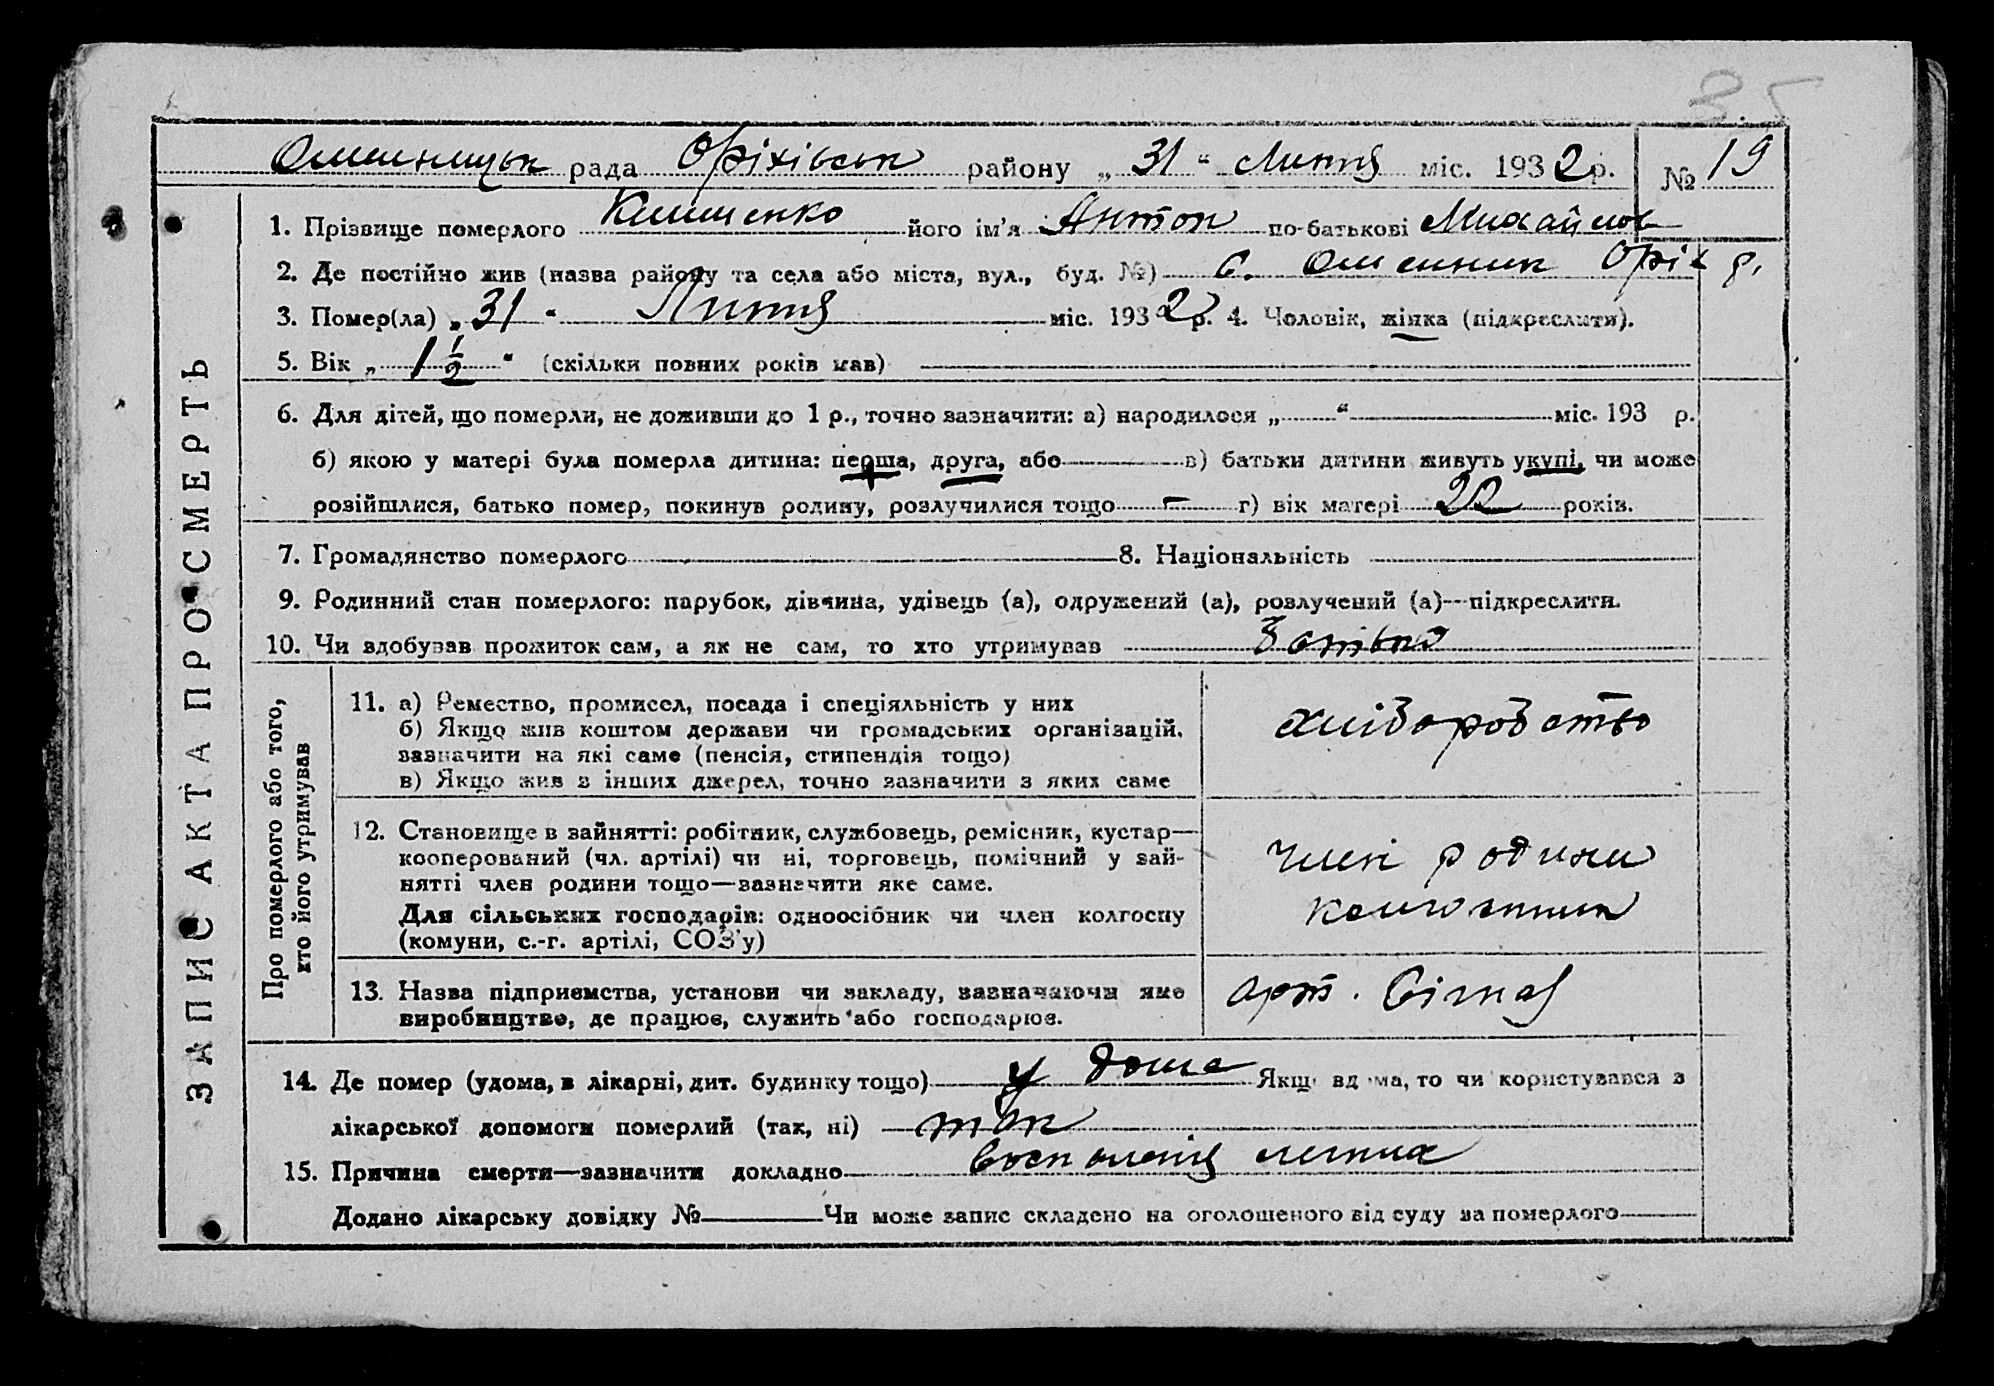 35
Омельницьк рада Оріхівськ району „31“ Липня міс. 1932 р. № 19
ЗАПИС АКТА ПРО СМЕРТЬ
1. Прізвище померлого Клименко його ім'я Антон по-батькові Михайлов
2. Де постійно жив (назва району та села або міста, вул., буд. №) с. Омельник Оріх р.
3. Помер(ла) „31“ Липня міс. 1932 р. 4. Чоловік, жінка (підкреслити).
5. Вік „1 1/2“ (скільки повних років мав)
6. Для дітей, що померли, не доживши до 1 р., точно зазначити: а) народилося „ “ міс. 193 р.
б) якою у матері була померла дитина: перша, друга, або в) батьки дитини живуть укупі, чи може
розійшлися, батько помер, покинув родину, розлучилися тощо — г) вік матері 22 років.
7. Громадянство померлого 8. Національність
9. Родинний стан померлого: парубок, дівчина, удівець (а), одружений (а), розлучений (а)—підкреслити.
10. Чи здобував прожиток сам, а як не сам, то хто утримував
Про померлого або того,
хто його утримував
11. а) Ремество, промисел, посада і спеціяльність у них
б) Якщо жив коштом держави чи громадських організацій,
зазначити на які саме (пенсія, стипендія тощо)
в) Якщо жив з інших джерел, точно зазначити з яких саме
хліборобство
12. Становище в зайнятті: робітник, службовець, ремісник, кустар—
кооперований (чл. артілі) чи ні, торговець, помічний у зай-
нятті член родини тощо—зазначити яке саме.
Для сільських господарів: одноосібник чи член колгоспу
(комуни, с.-г. артілі, СОЗ'у)
член родини
13. Назва підприємства, установи чи закладу, зазначаючи яке
виробництво, де працює, служить або господарює.
арт.
14. Де помер (удома, в лікарні, дит. будинку тощо) у дома Якщо вдома, то чи користувався з
лікарської допомоги померлий (так, ні) так
15. Причина смерти—зазначити докладно воспаленія легких
Додано лікарську довідку № Чи може запис складено на оголошеного від суду за померлого